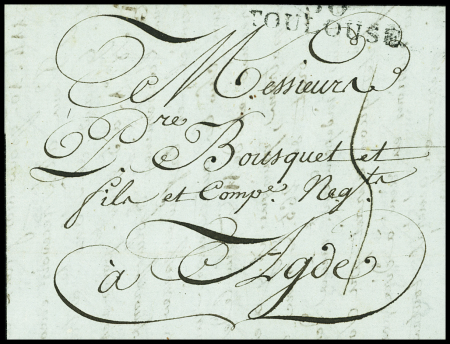 30
TOULOUSE
Messieurs
Pre. Bousquet et
fils et Compe. Negts.
à Agde